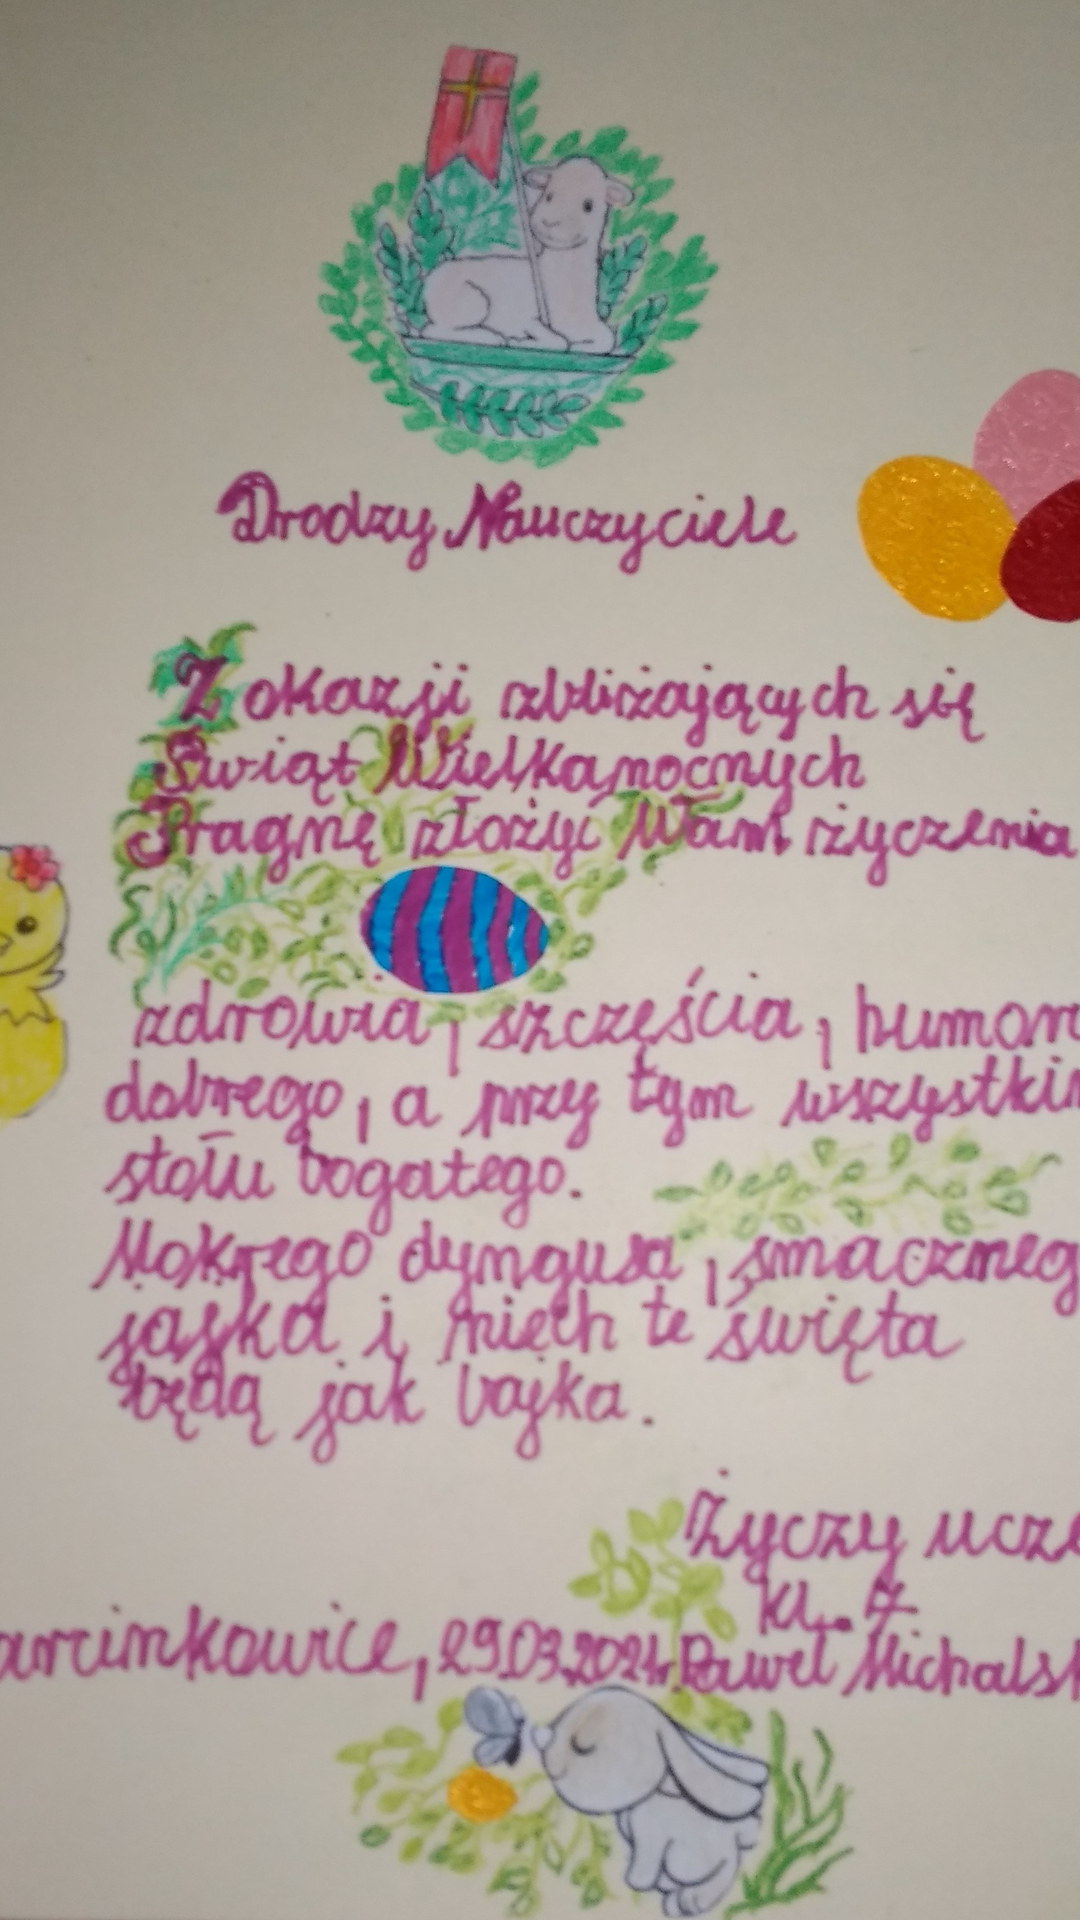 Drodzy Nauczyciele
Z okazji zbliżających się
Świąt Wielkanocnych
Pragnę złożyć Wam życzenia
zdrowia, szczęścia, humoru
dobrego, a przy tym wszystkim
stołu bogatego.
Mokrego dyngusa, smacznego
jajka i niech te święta
będą jak bajka.
Życzy ucze
kl. 7
arcinkowice, 29.03.2021r. Paweł Michalsk